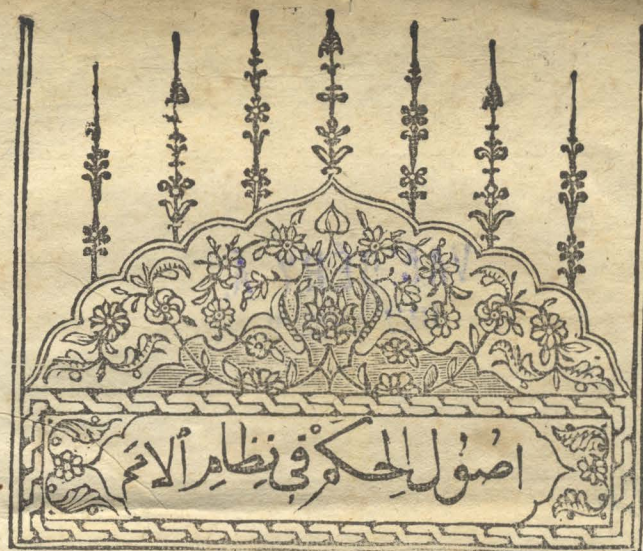 اصُول الحِكَمْ فى نِظامِ ألاُمَم